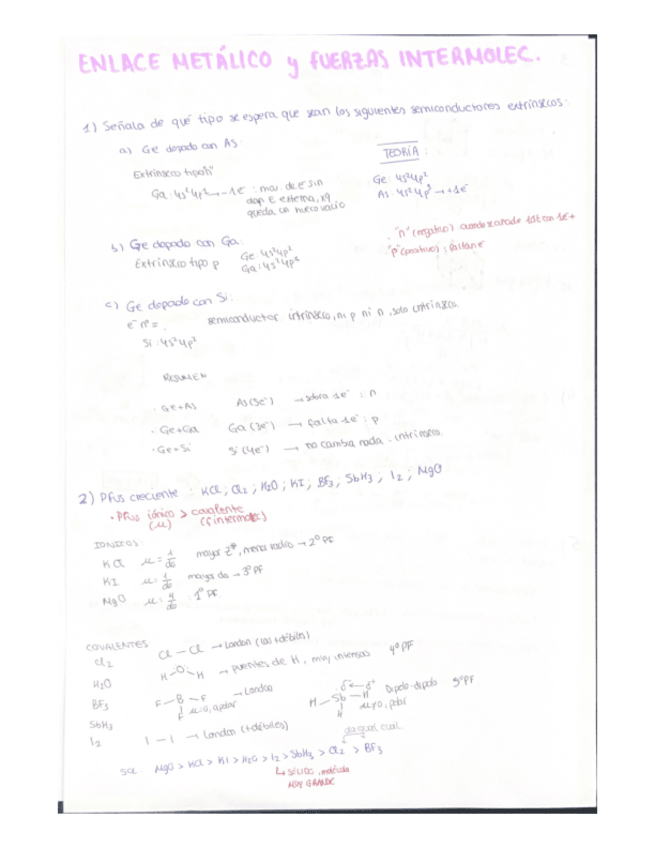 ENLACE METÁLICO y FUERZAS INTERMOLEC.
1) Señala de qué tipo se espera que sean los siguientes semiconductores extrínsecos:
a) Ge dopado con As:
TEORÍA:
Extrínseco tipo "n"
Ge: 4s²4p²
As: 4s²4p³ → +1e⁻
queda un nuevo vacío
"p" (positivo): faltan e⁻
b) Ge dopado con Ga:
Extrínseco tipo p
Ge: 4s²4p²
c) Ge dopado con Si:
e⁻ nº =
semiconductor intrínseco, ni p ni n, solo intrínseco.
Si: 4s²4p²
RESUMEN
· Ge+As As(5e⁻) → sobra 1e⁻: n
· Ge+Ga Ga(3e⁻) → falta 1e⁻: p
· Ge+Si Si(4e⁻) → no cambia nada: intrínseco.
2) Pfus creciente: KCl; Cl₂; H₂O; KI; BF₃; SbH₃; I₂; MgO
· Pfus iónico > covalente
(μ) (f intermolec)
IONICOS:
KCl μ = 1/do menor radio → 2º PF
KI μ = 1/do mayor do → 3º PF
MgO μ = 4/do 1º PF
COVALENTES
Cl₂ Cl — Cl → London (las +débiles)
H₂O H-O-H → puentes de H, muy intensas 4º PF
BF₃ F-B-F F μ=0, apolar → London
SbH₃ H-Sb-H H δ⁻ δ⁺ μ≠0, polar Dipolo-dipolo 5º PF
I₂ I — I → London (+débiles)
da igual cual
Sol: MgO > KCl > KI > H₂O > I₂ > SbH₃ > Cl₂ > BF₃
↳ SÓLIDO, molécula
MUY GRANDE